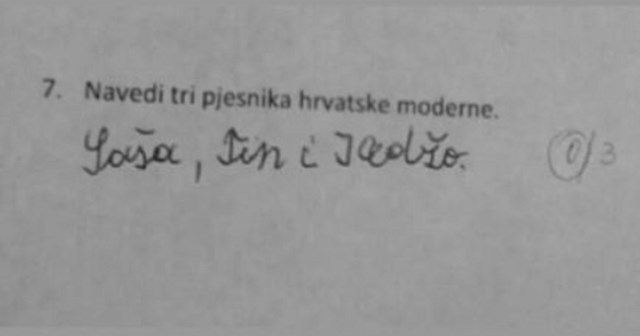 7. Navedi tri pjesnika hrvatske moderne.
Saša, Tin i Kedžo. 0/3